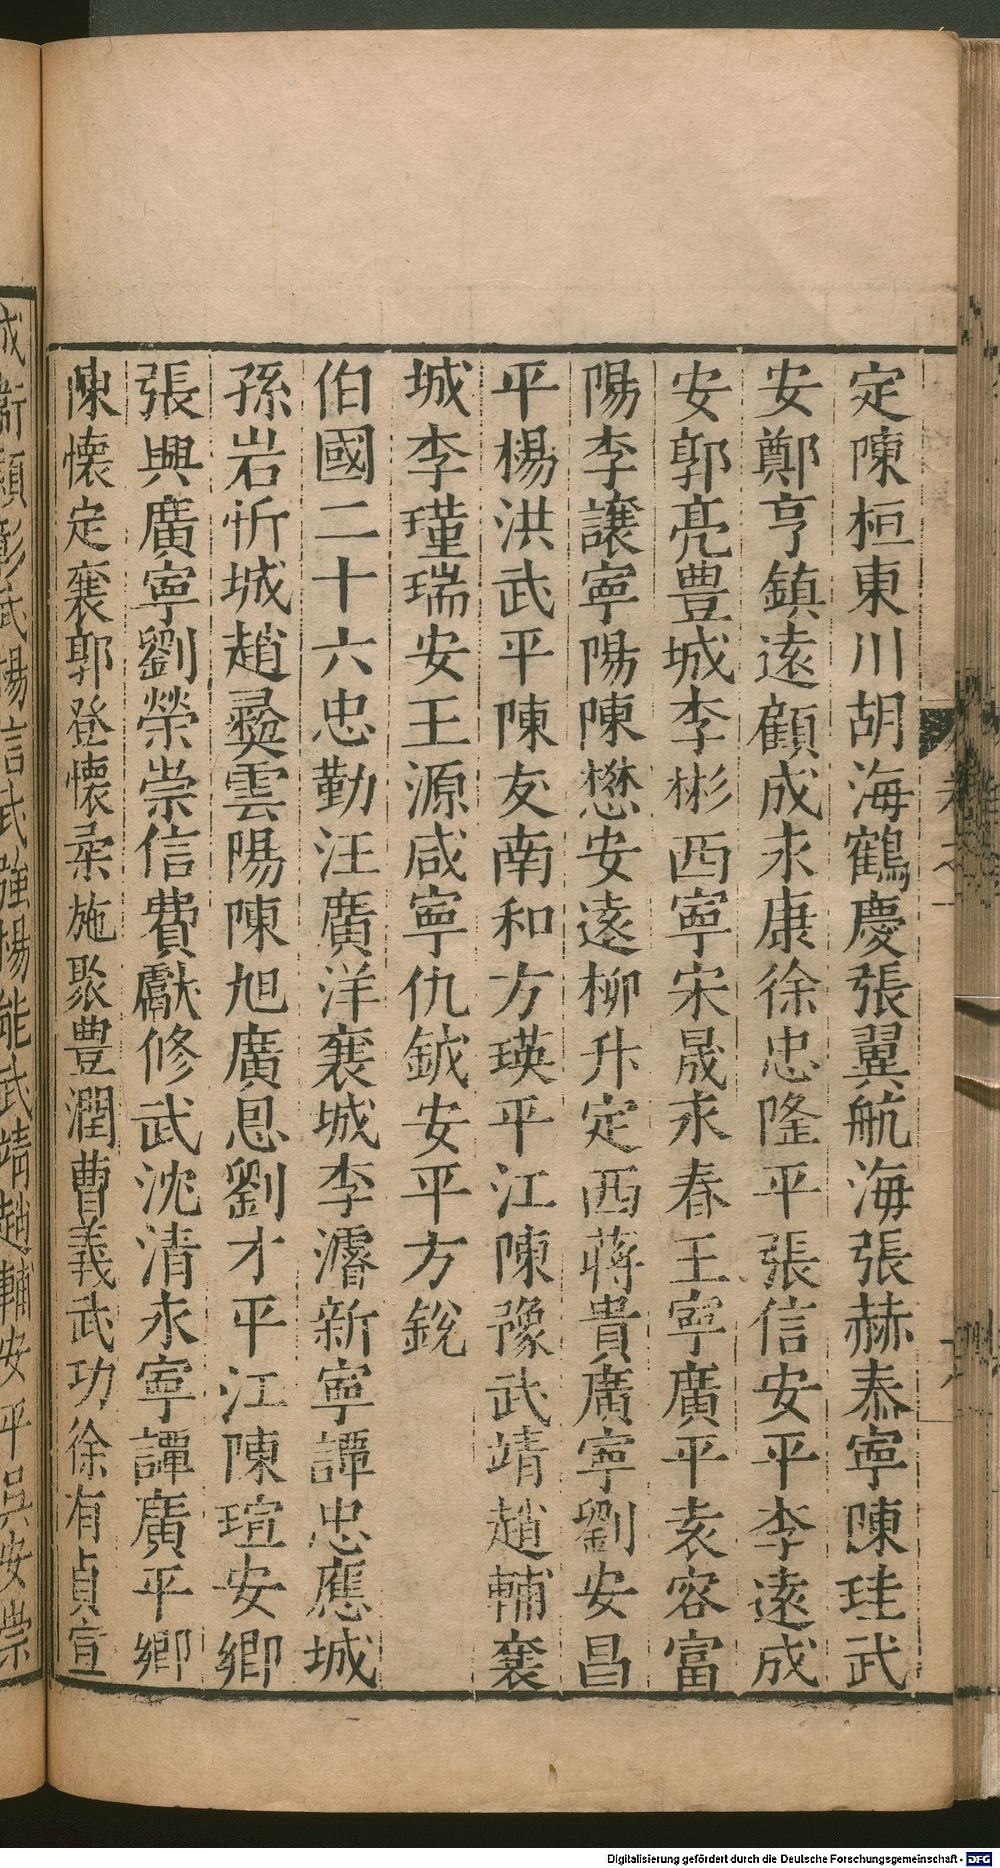 定陳桓東川胡海鶴慶張翼航海張赫泰寧陳珪武
安鄭亨鎮遠顧成永康徐忠隆平張信安平李遠成
安郭亮豊城李彬西寧宋晟永春王寧廣平袁容富
陽李讓寧陽陳懋安遠柳升定西蔣貴廣寧劉安昌
平楊洪武平陳友南和方瑛平江陳豫武靖趙輔襄
城李瑾瑞安王源咸寧仇鉞安平方銳
伯國二十六忠勤汪廣洋襄城李濬新寧譚忠應城
孫岩忻城趙彞雲陽陳旭廣恩劉才平江陳瑄安鄉
張興廣寧劉榮崇信費獻修武沈清永寧譚廣平鄉
陳懷定襄郭登懷柔施聚豊潤曹義武功徐有貞宣
Digitalisierung gefördert durch die Deutsche Forschungsgemeinschaft - DFG